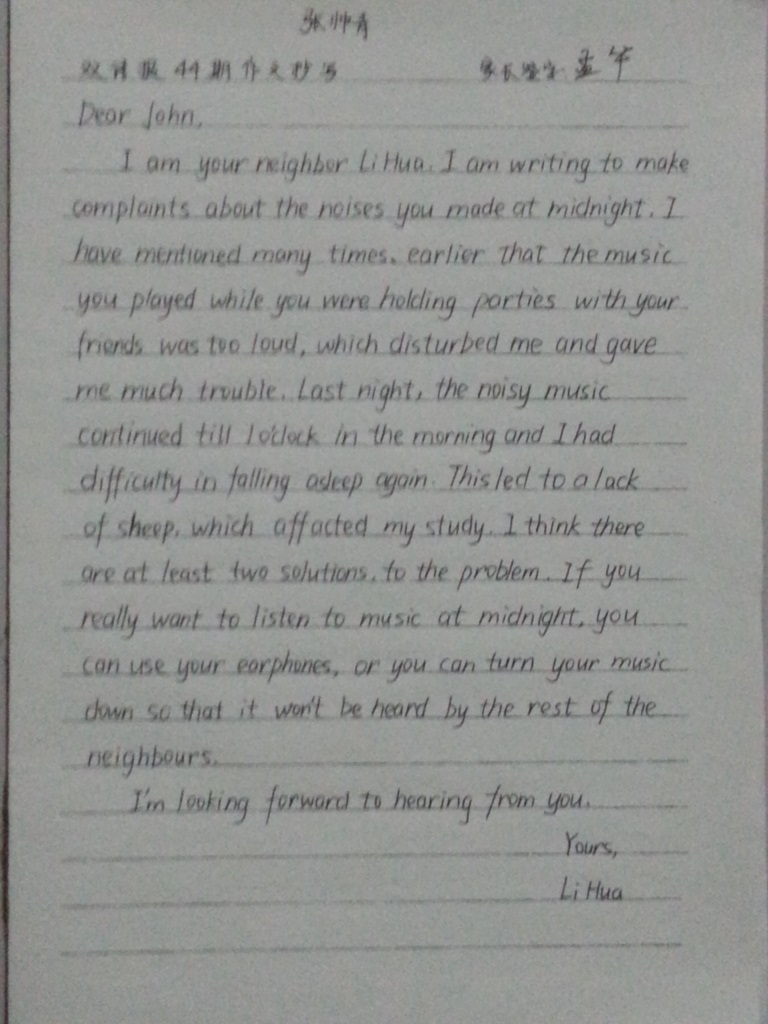 张帅青
双语报44期作文抄写 家长签字:孟军
Dear John,
I am your neighbor Li Hua. I am writing to make
complaints about the noises you made at midnight. I
have mentioned many times. earlier that the music
you played while you were holding parties with your
friends was too loud, which disturbed me and gave
me much trouble. Last night, the noisy music
continued till 1o'clock in the morning and I had
difficulty in falling asleep again. This led to a lack
of sheep, which affacted my study. I think there
are at least two solutions. to the problem. If you
really want to listen to music at midnight, you
can use your earphones, or you can turn your music
down so that it won't be heard by the rest of the
neighbours.
I'm looking forward to hearing from you.
Yours,
Li Hua